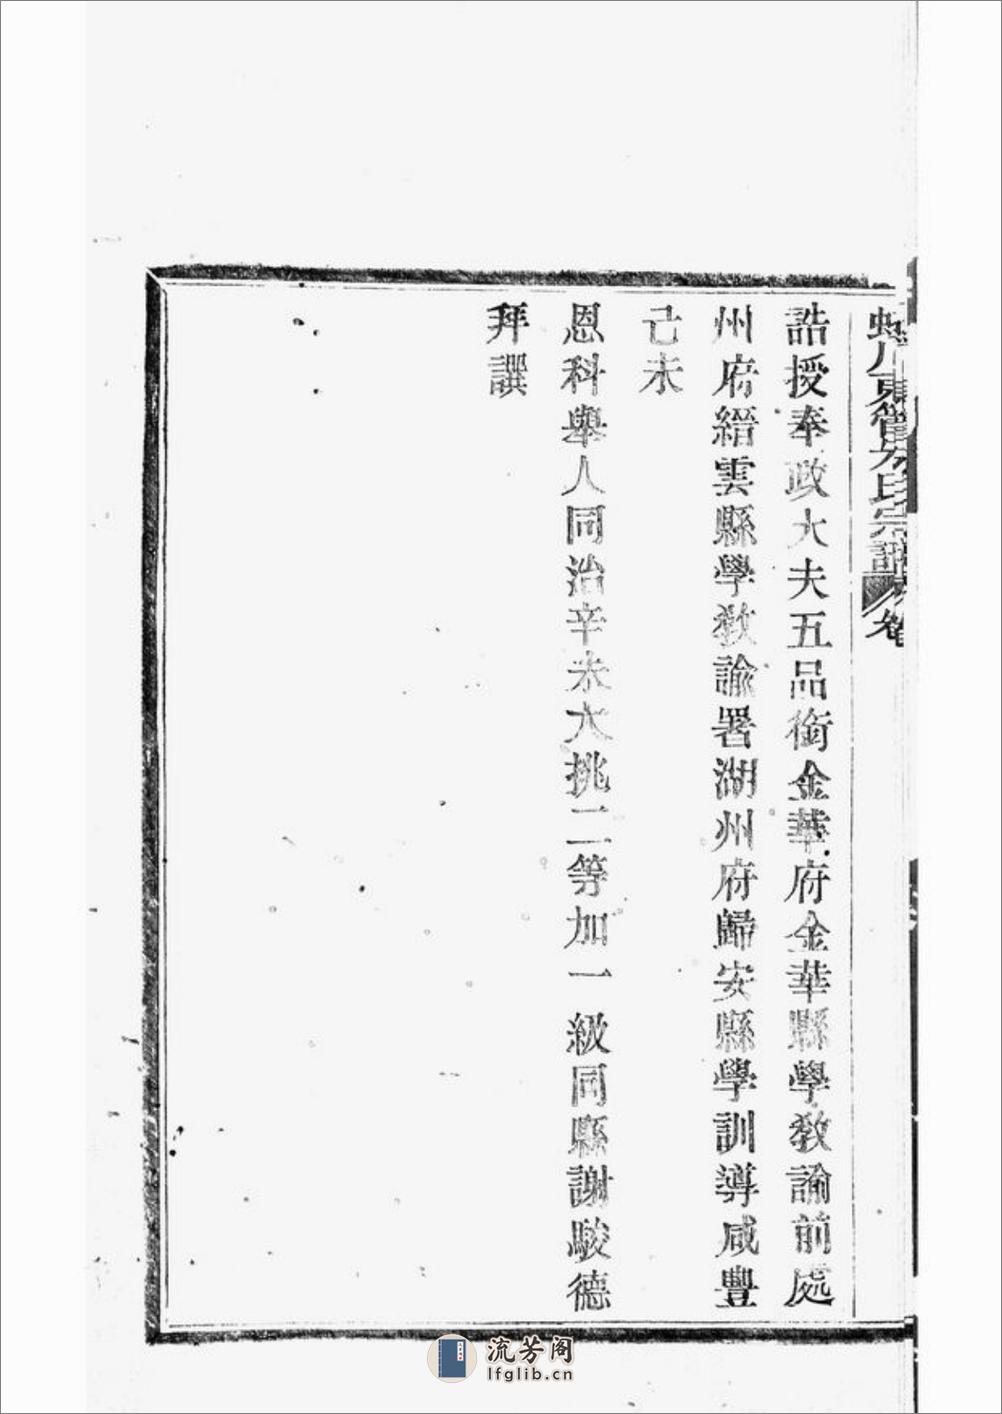 誥授奉政大夫五品銜金華府金華縣學教諭前處
州府縉雲縣學教諭署湖州府歸安縣學訓導咸豐
己未
恩科舉人同治辛未大挑二等加一級同縣謝駿德
拜譔
流芳阁
lfglib.cn